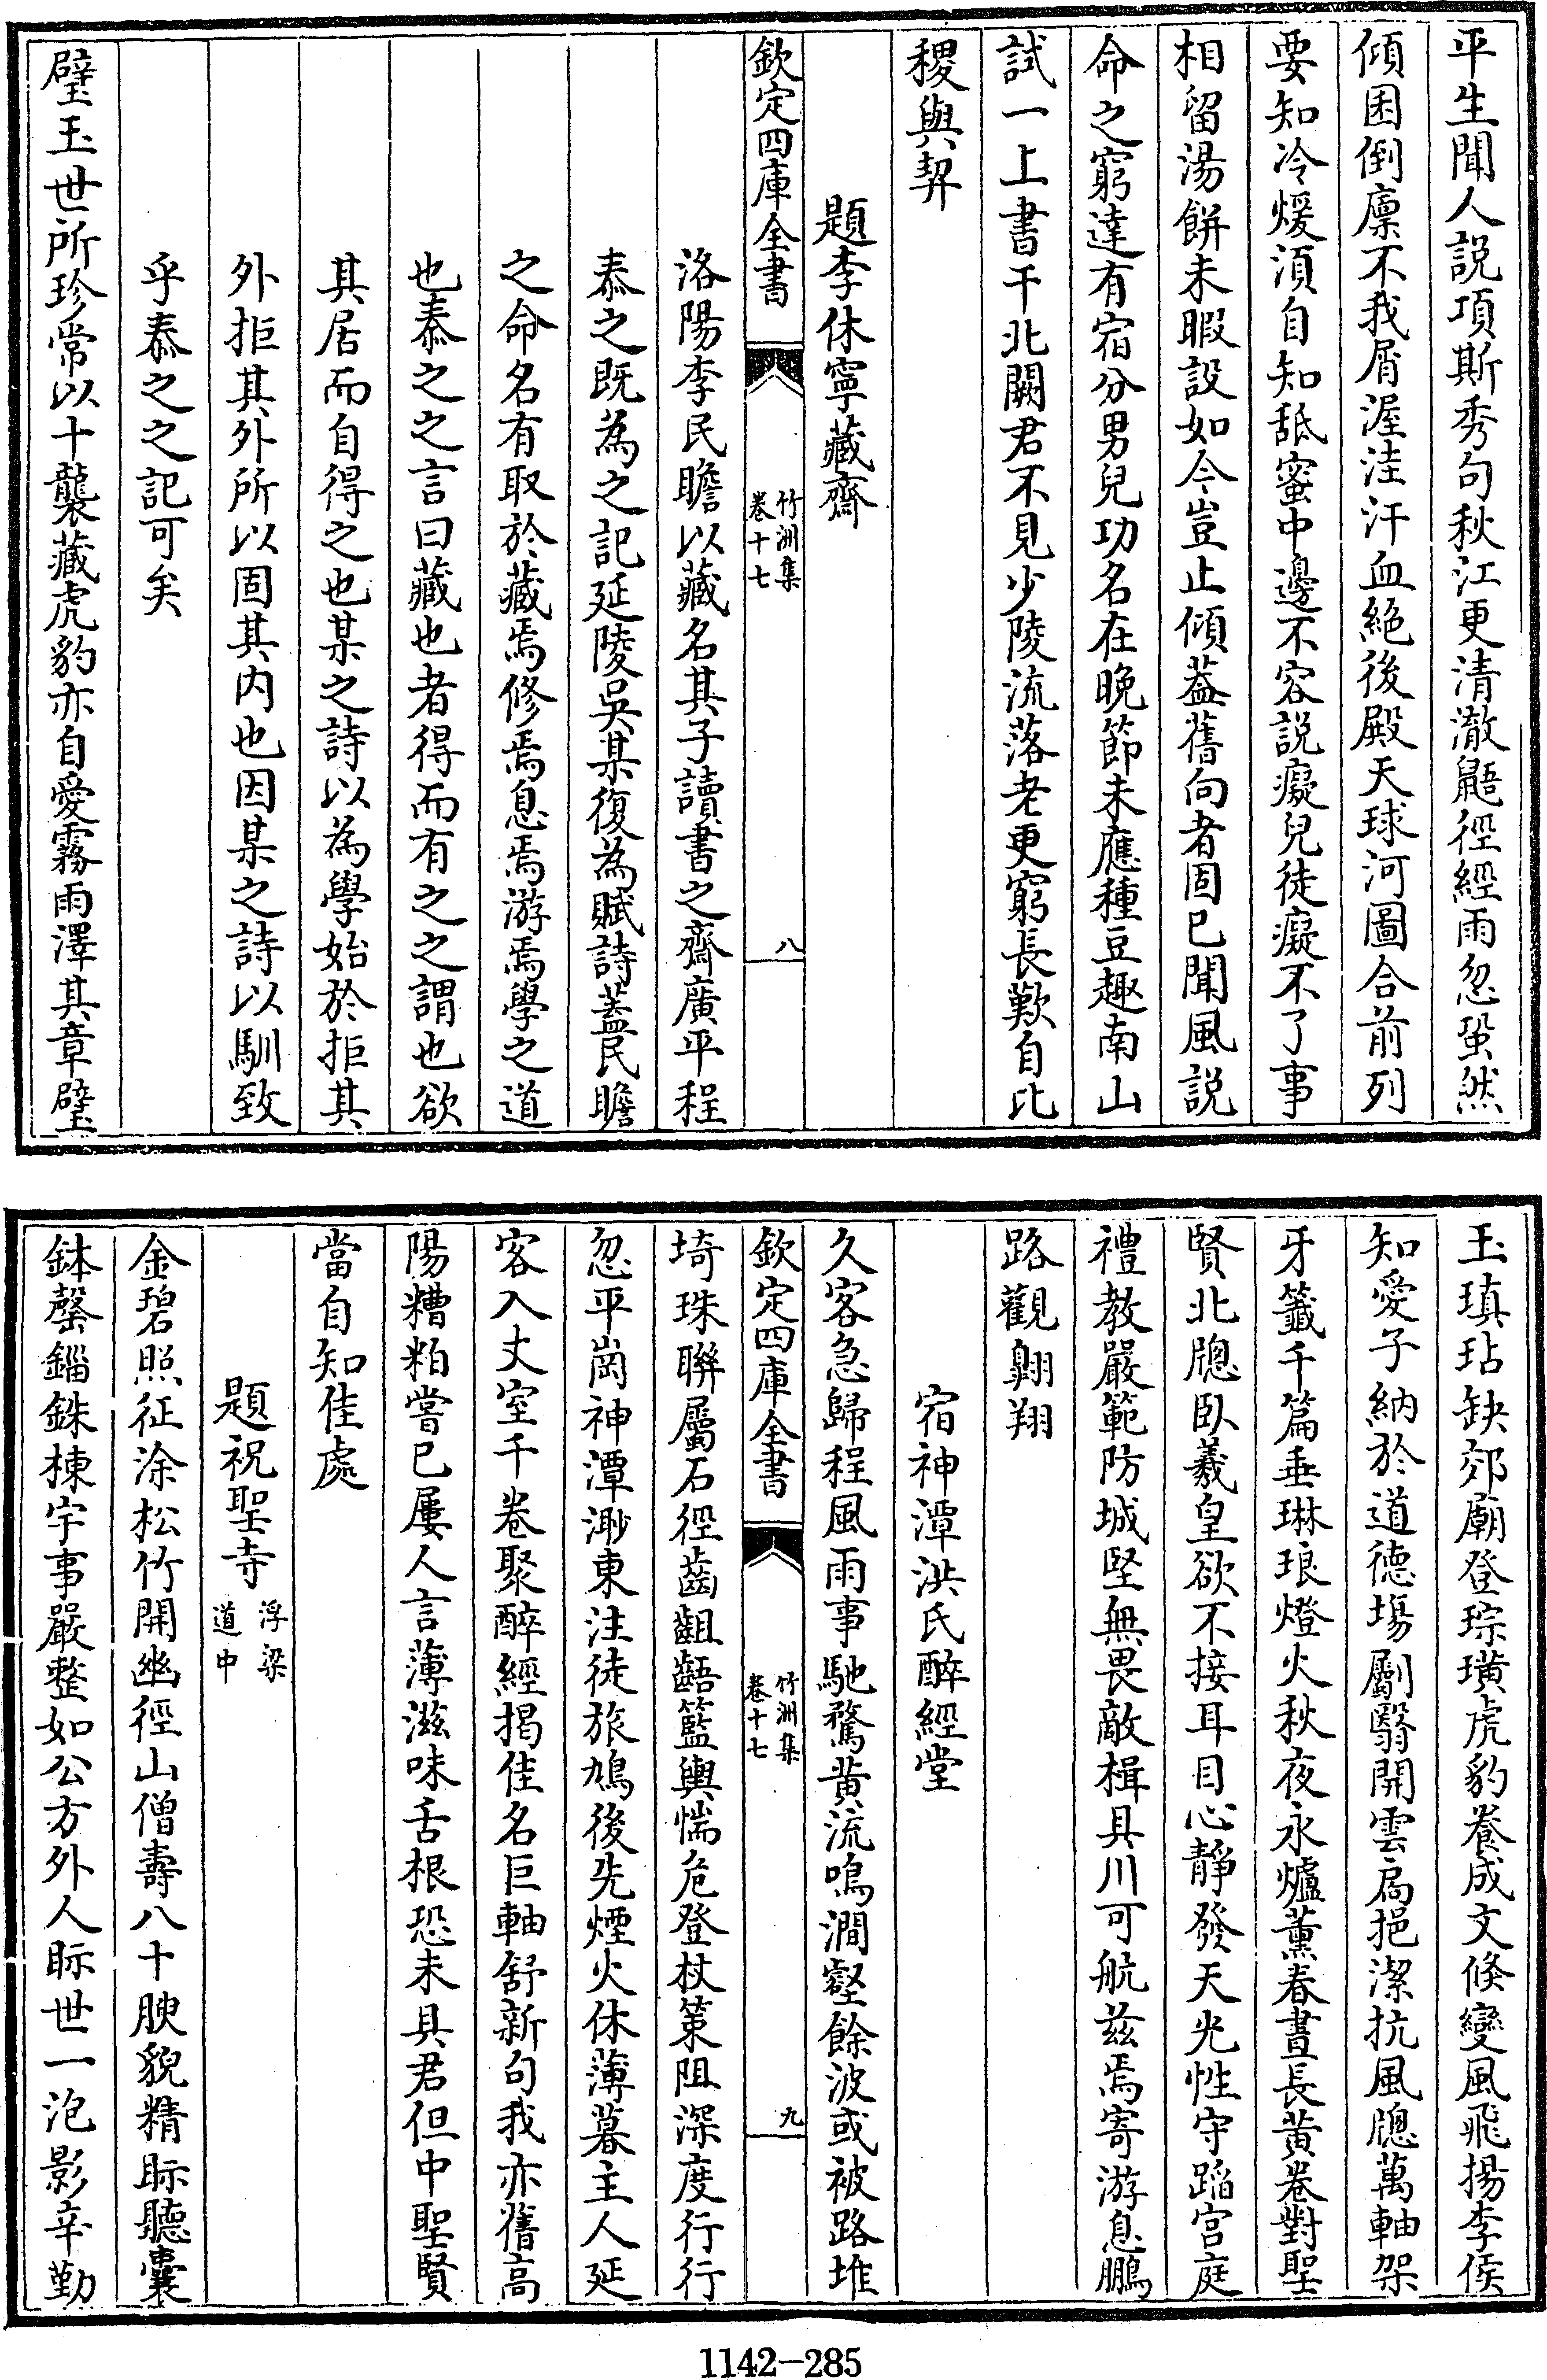 平生聞人說項斯秀句秋江更清澈鼯徑經雨忽蛩然
傾囷倒廩不我屑渥洼汗血絕後殿天球河圖合前列
要知冷煖湏自知舐蜜中邊不容說癡兒徒癡不了事
相留湯餅未暇設如今豈止傾葢舊向者固已聞風說
命之窮達有宿分男兒功名在晚節未應種豆趣南山
試一上書干北闕君不見少陵流落老更窮長歎自比
稷與契
題李休寧藏齋
欽定四庫全書
竹洲集
卷十七
八
洛陽李民瞻以藏名其子讀書之齋廣平程
泰之既為之記延陵吳某復為賦詩蓋民瞻
之命名有取於藏焉修焉息焉游焉學之道
也泰之之言曰藏也者得而有之之謂也欲
其居而自得之也某之詩以為學始於拒其
外拒其外所以固其内也因某之詩以馴致
乎泰之之記可矣
璧玉世所珍常以十襲藏虎豹亦自愛霧雨澤其章璧
玉瑱玷缺郊廟登琮璜虎豹養成文倏變風飛揚李侯
知愛子納於道德塲劚翳開雲扃挹潔抗風牕萬軸架
牙籤千篇垂琳琅燈火秋夜永爐薰春晝長黃卷對聖
賢北牕卧羲皇欲不接耳目心靜發天光性守蹈宫庭
禮教嚴範防城堅無畏敵楫具川可航兹焉寄游息鵬
路觀翺翔
宿神潭洪氏醉經堂
久客急歸程風雨事馳騖黄流鳴澗壑餘波或被路堆
欽定四庫全書
竹洲集
卷十七
九
埼珠聯屬石徑齒齟齬籃輿惴危登杖策阻深度行行
忽平崗神潭渺東注徒旅鳩後先煙火休薄暮主人延
客入丈室千卷聚醉經揭佳名巨軸舒新句我亦舊高
陽糟粕嘗已屢人言薄滋味舌根恐未具君但中聖賢
當自知佳處
題祝聖寺浮梁道中
金碧照征涂松竹開幽徑山僧壽八十腴貌精眎聽囊
鉢罄錙銖棟宇事嚴整如公方外人眎世一泡影辛勤
1142-285